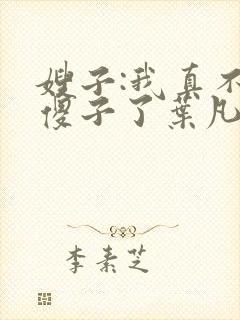 嫂子:我真不
傻子了葉凡
李素芝